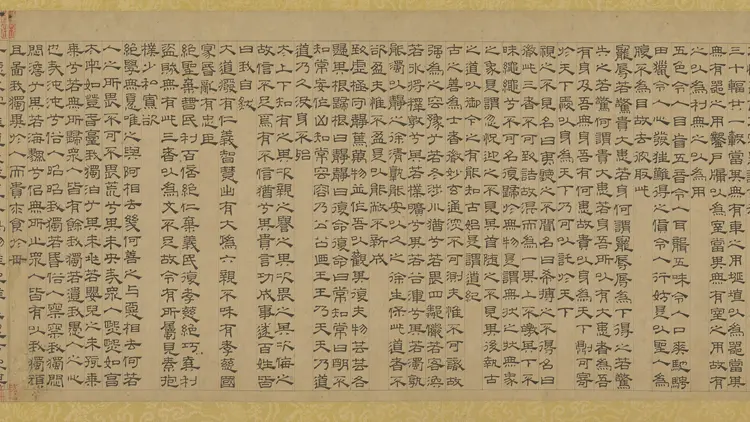 三十輻廿一轂當其無有車之用埏埴以為器當其
無有器之用鑿戶牖以為室當其無有室之用故有
之以為利無之以為用
五色令人目盲五音令人耳聾五味令人口爽馳騁
田獵令人心發狂難得之貨令人行妨是以聖人為
腹不為目故去彼取此
寵辱若驚貴大患若身何謂寵辱辱為下得之若驚
失之若驚何謂貴大患若身吾所以有大患者為吾
有身及吾無身吾有何患故貴以身為天下則可寄
於天下愛以身為天下乃可以託於天下
視之不見名曰夷聽之不聞名曰希搏之不得名曰
微此三者不可致詰故混而為一其上不皦其下不
昧繩繩兮不可名復歸於無物是謂無狀之狀無象
之象是謂忽恍迎之不見其首隨之不見其後執古
之道以御今之有能知古始是謂道紀
古之善為士者微妙玄通深不可測夫惟不可識故
強為之容豫兮若冬涉川猶兮若畏四鄰儼若客渙
若冰將釋敦兮其若樸曠兮其若谷渾兮其若濁孰
能濁以靜之徐清孰能安以久之徐生保此道者不
欲盈夫惟不盈是以能敝不新成
致虛極守靜篤萬物並作吾以觀其復夫物芸芸各
歸其根歸根曰靜靜曰復命復命曰常知常曰明不
知常妄作凶知常容容乃公公乃王王乃天天乃道
道乃久沒身不殆
太上下知有之其次親之譽之其次畏之其次侮之
故信不足焉有不信猶兮其貴言功成事遂百姓皆
曰我自然
大道廢有仁義智慧出有大偽六親不和有孝慈國
家昏亂有忠臣
絕聖棄智民利百倍絕仁棄義民復孝慈絕巧棄利
盜賊無有此三者以為文不足故令有所屬見素抱
樸少私寡欲
絕學無憂唯之與阿相去幾何善之與惡相去何若
人之所畏不可不畏荒兮其未央眾人熙熙如享
太牢如登春臺我獨泊兮其未兆若嬰兒之未孩乘
乘兮若無所歸眾人皆有餘我獨若遺我愚人之心
也哉沌沌兮俗人昭昭我獨若昏俗人察察我獨悶
悶澹兮其若海飄兮似無所止眾人皆有以我獨頑
且鄙我獨異於人而貴求食於母